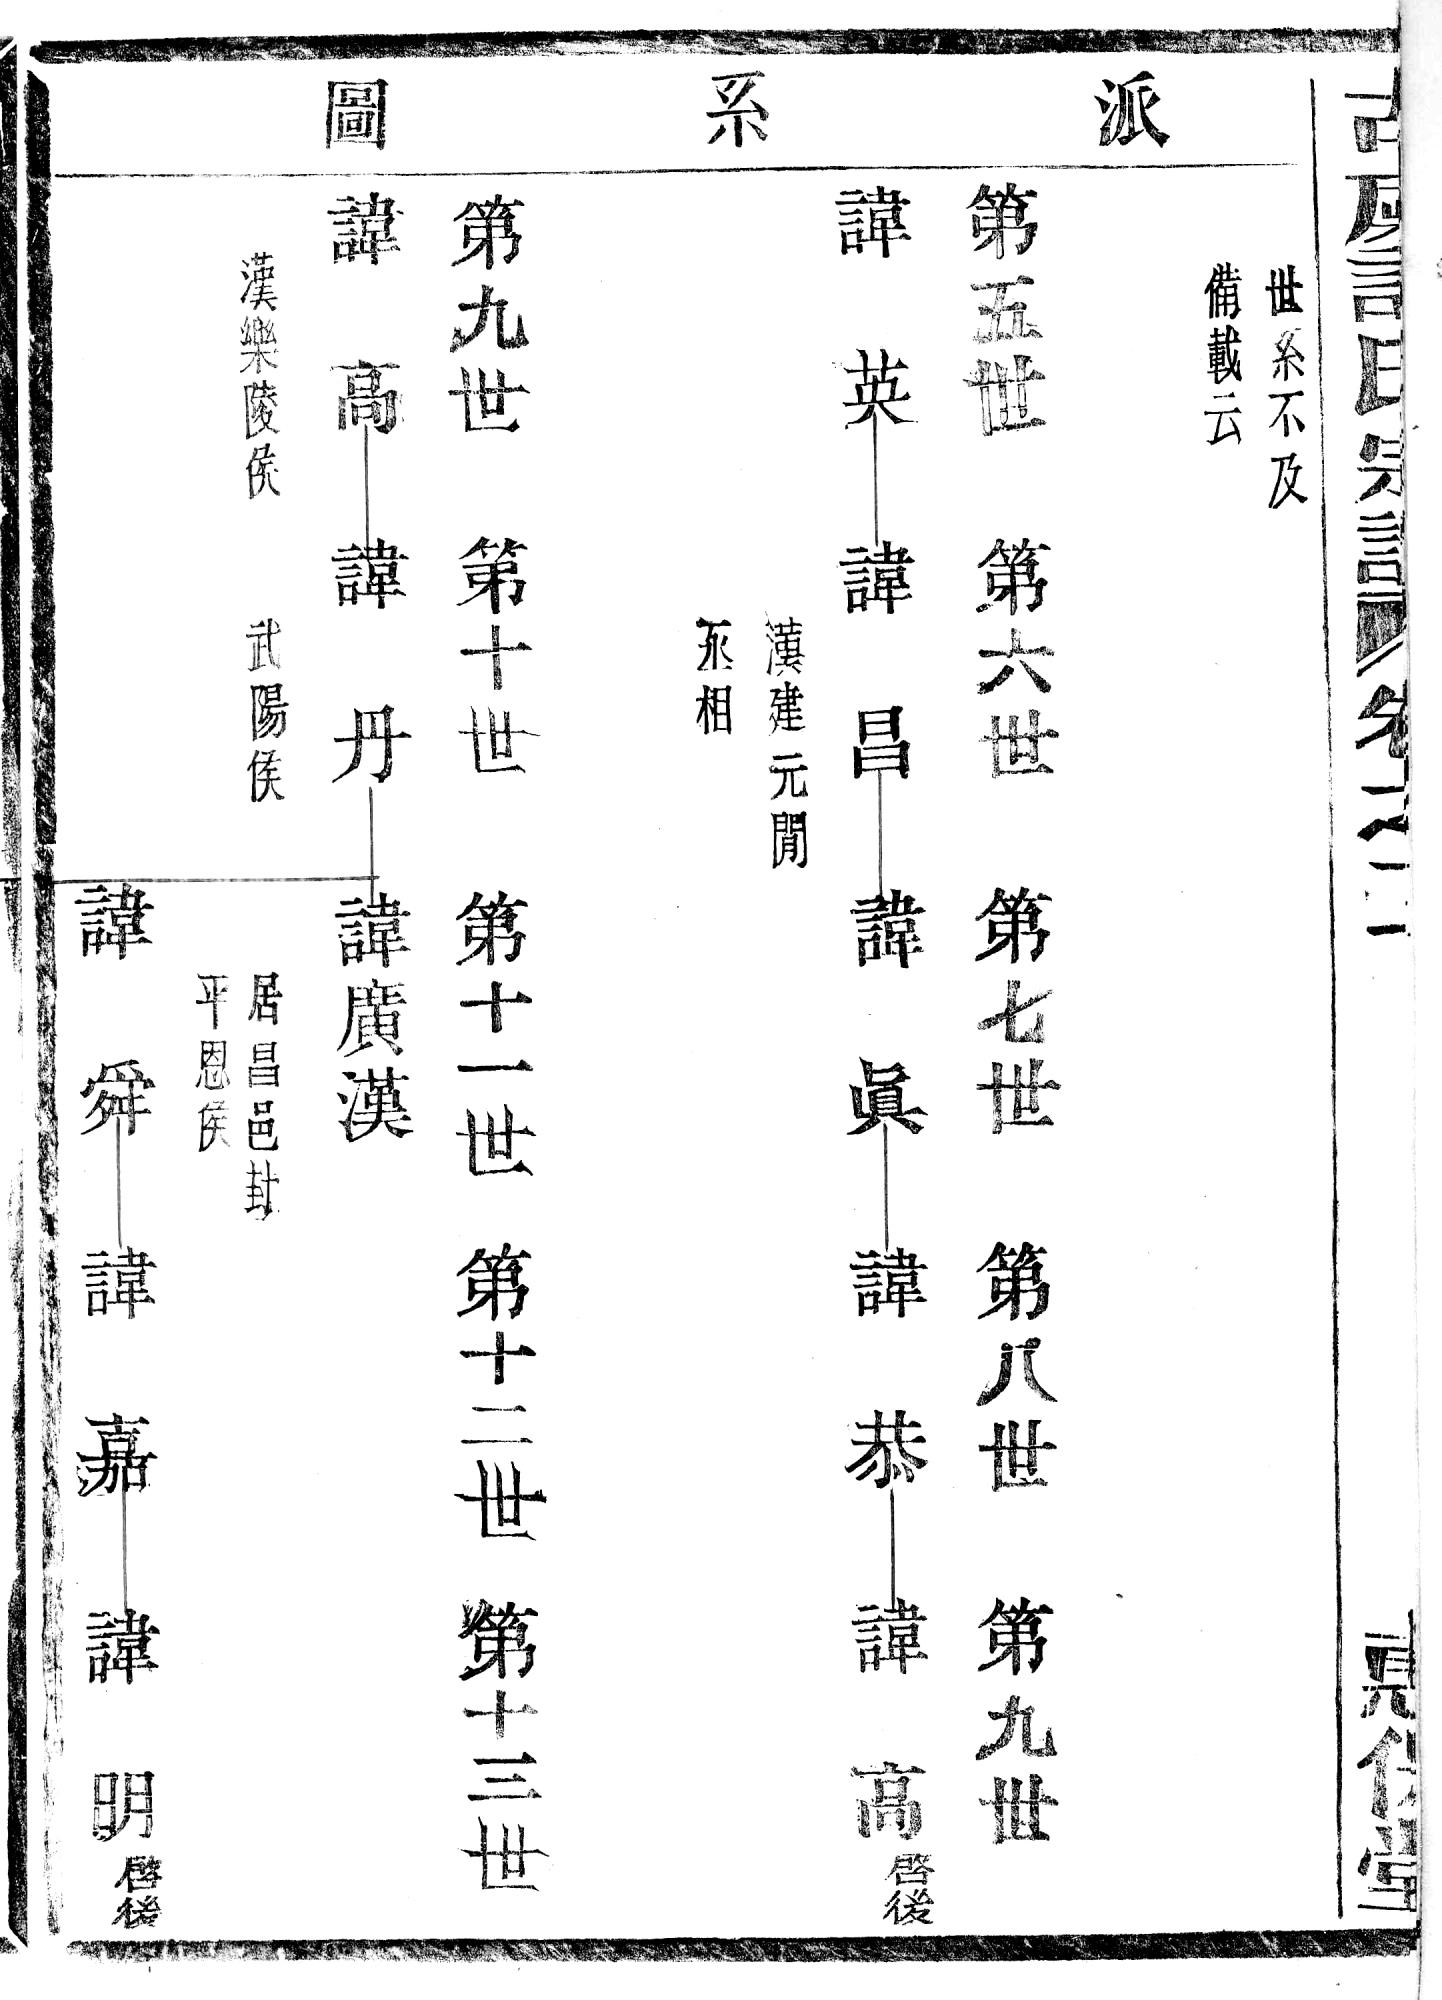 許氏宗譜
卷之二
惠伆堂
派系圖
世系不及
備載云
第五世 第六世 第七世 第八世 第九世
諱英 諱昌 諱眞 諱恭 諱高 啓後
漢建元閒
丞相
第九世 第十世 第十一世 第十二世 第十三世
諱高 諱丹 諱廣漢
漢樂陵侯 武陽侯 居昌邑封
平恩侯
諱舜 諱嘉 諱明 啓後